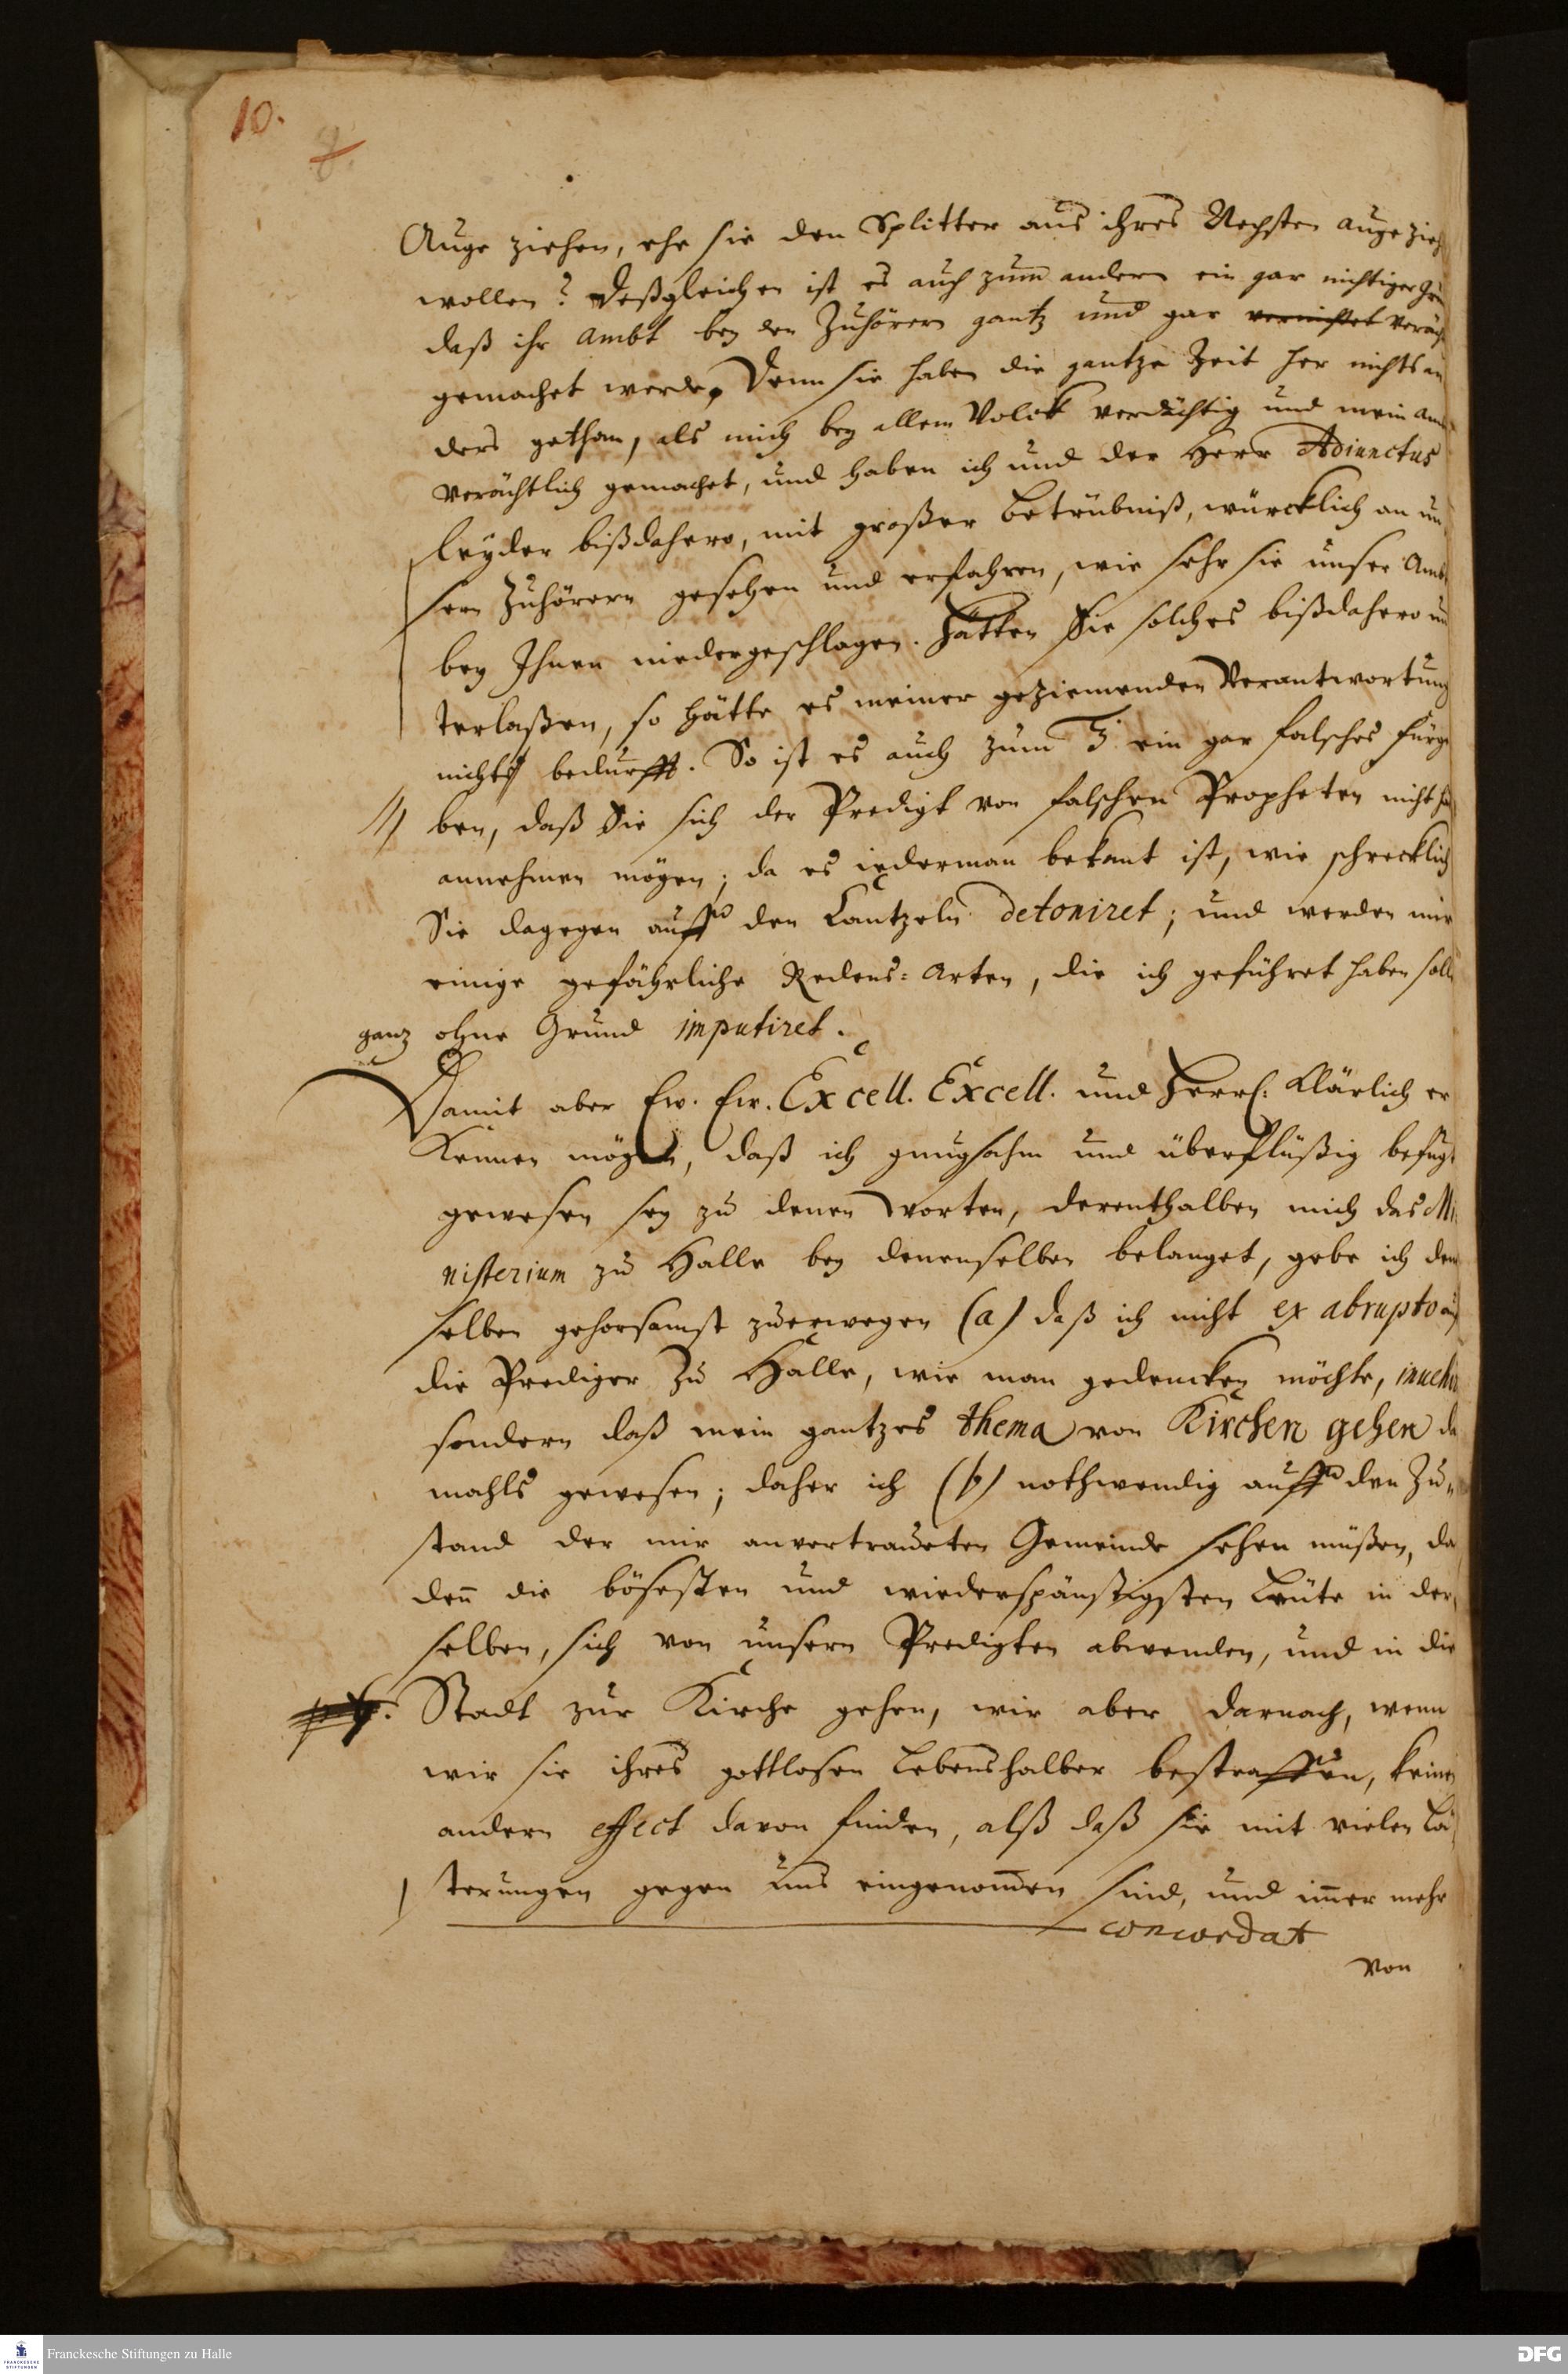 10.
8.
Auge ziehen, ehe sie den Splitter aus ihres Nechsten auge zieh
wollen? Deßgleichen ist es auch zum andern ein gar nichtiger
daß ihr Ambt bey den Zuhörern gantz und gar vernichtet veräch
gemachet werde, Denn sie haben die gantze Zeit her nichts an
ders gethan, als mich bey allem Volck verdächtig und mein Am
verächtlich gemachet, und haben ich und der Herr Adiunctus
leyder bißdahero, mit großer Betrübniß, würcklich an un
sern Zuhörern gesehen und erfahren, wie sehr sie unser Amb
bey Ihnen niedergeschlagen. Hätten Sie solches bißdahero un
terlaßen, so hätte es meiner geziemenden Verantwortung
nichts bedurfft. So ist es auch zum 3 ein gar falsches fürge
ben, daß Sie sich der Predigt von falschen Propheten nicht
annehmen mögen; da es iederman bekant ist, wie schrecklich
Sie dagegen auff den Cantzeln detoniret; und werden mir
einige gefährliche Redens-Arten, die ich geführet haben soll
ganz ohne Grund imputiret.
Damit aber Ew. Ew. Excell. Excell. und Herrl. Klärlich er
kennen mögen, daß ich gnugsahm und überflüßig befugt
gewesen sey zu denen Worten, derenthalben mich das Mi
nisterium zu Halle bey denenselben belanget, gebe ich den
selben gehorsamst zuerwegen (a) daß ich nicht ex abrupto auf
die Prediger zu Halle, wie man gedencken möchte,
sondern daß mein gantzes thema von Kirchen gehen da
mahls gewesen; daher ich (b) nothwendig auff den Zu-
stand der mir anvertraueten Gemeinde sehen müßen, da
deñ die bösesten und wiederspänstigsten Leute in der
selben, sich von unsern Predigten abwenden, und in die
Stadt zur Kirche gehen, wir aber darnach, wenn
wir sie ihres gottlosen Lebenshalber bestraffen, keinen
andern effect davon finden, alß daß sie mit vielen Lä
terungen gegen uns eingenom̄en sind, und im̄er mehr
concordat
von
Franckesche Stiftungen zu Halle
FRANCKESCHE STIFTUNGEN
DFG